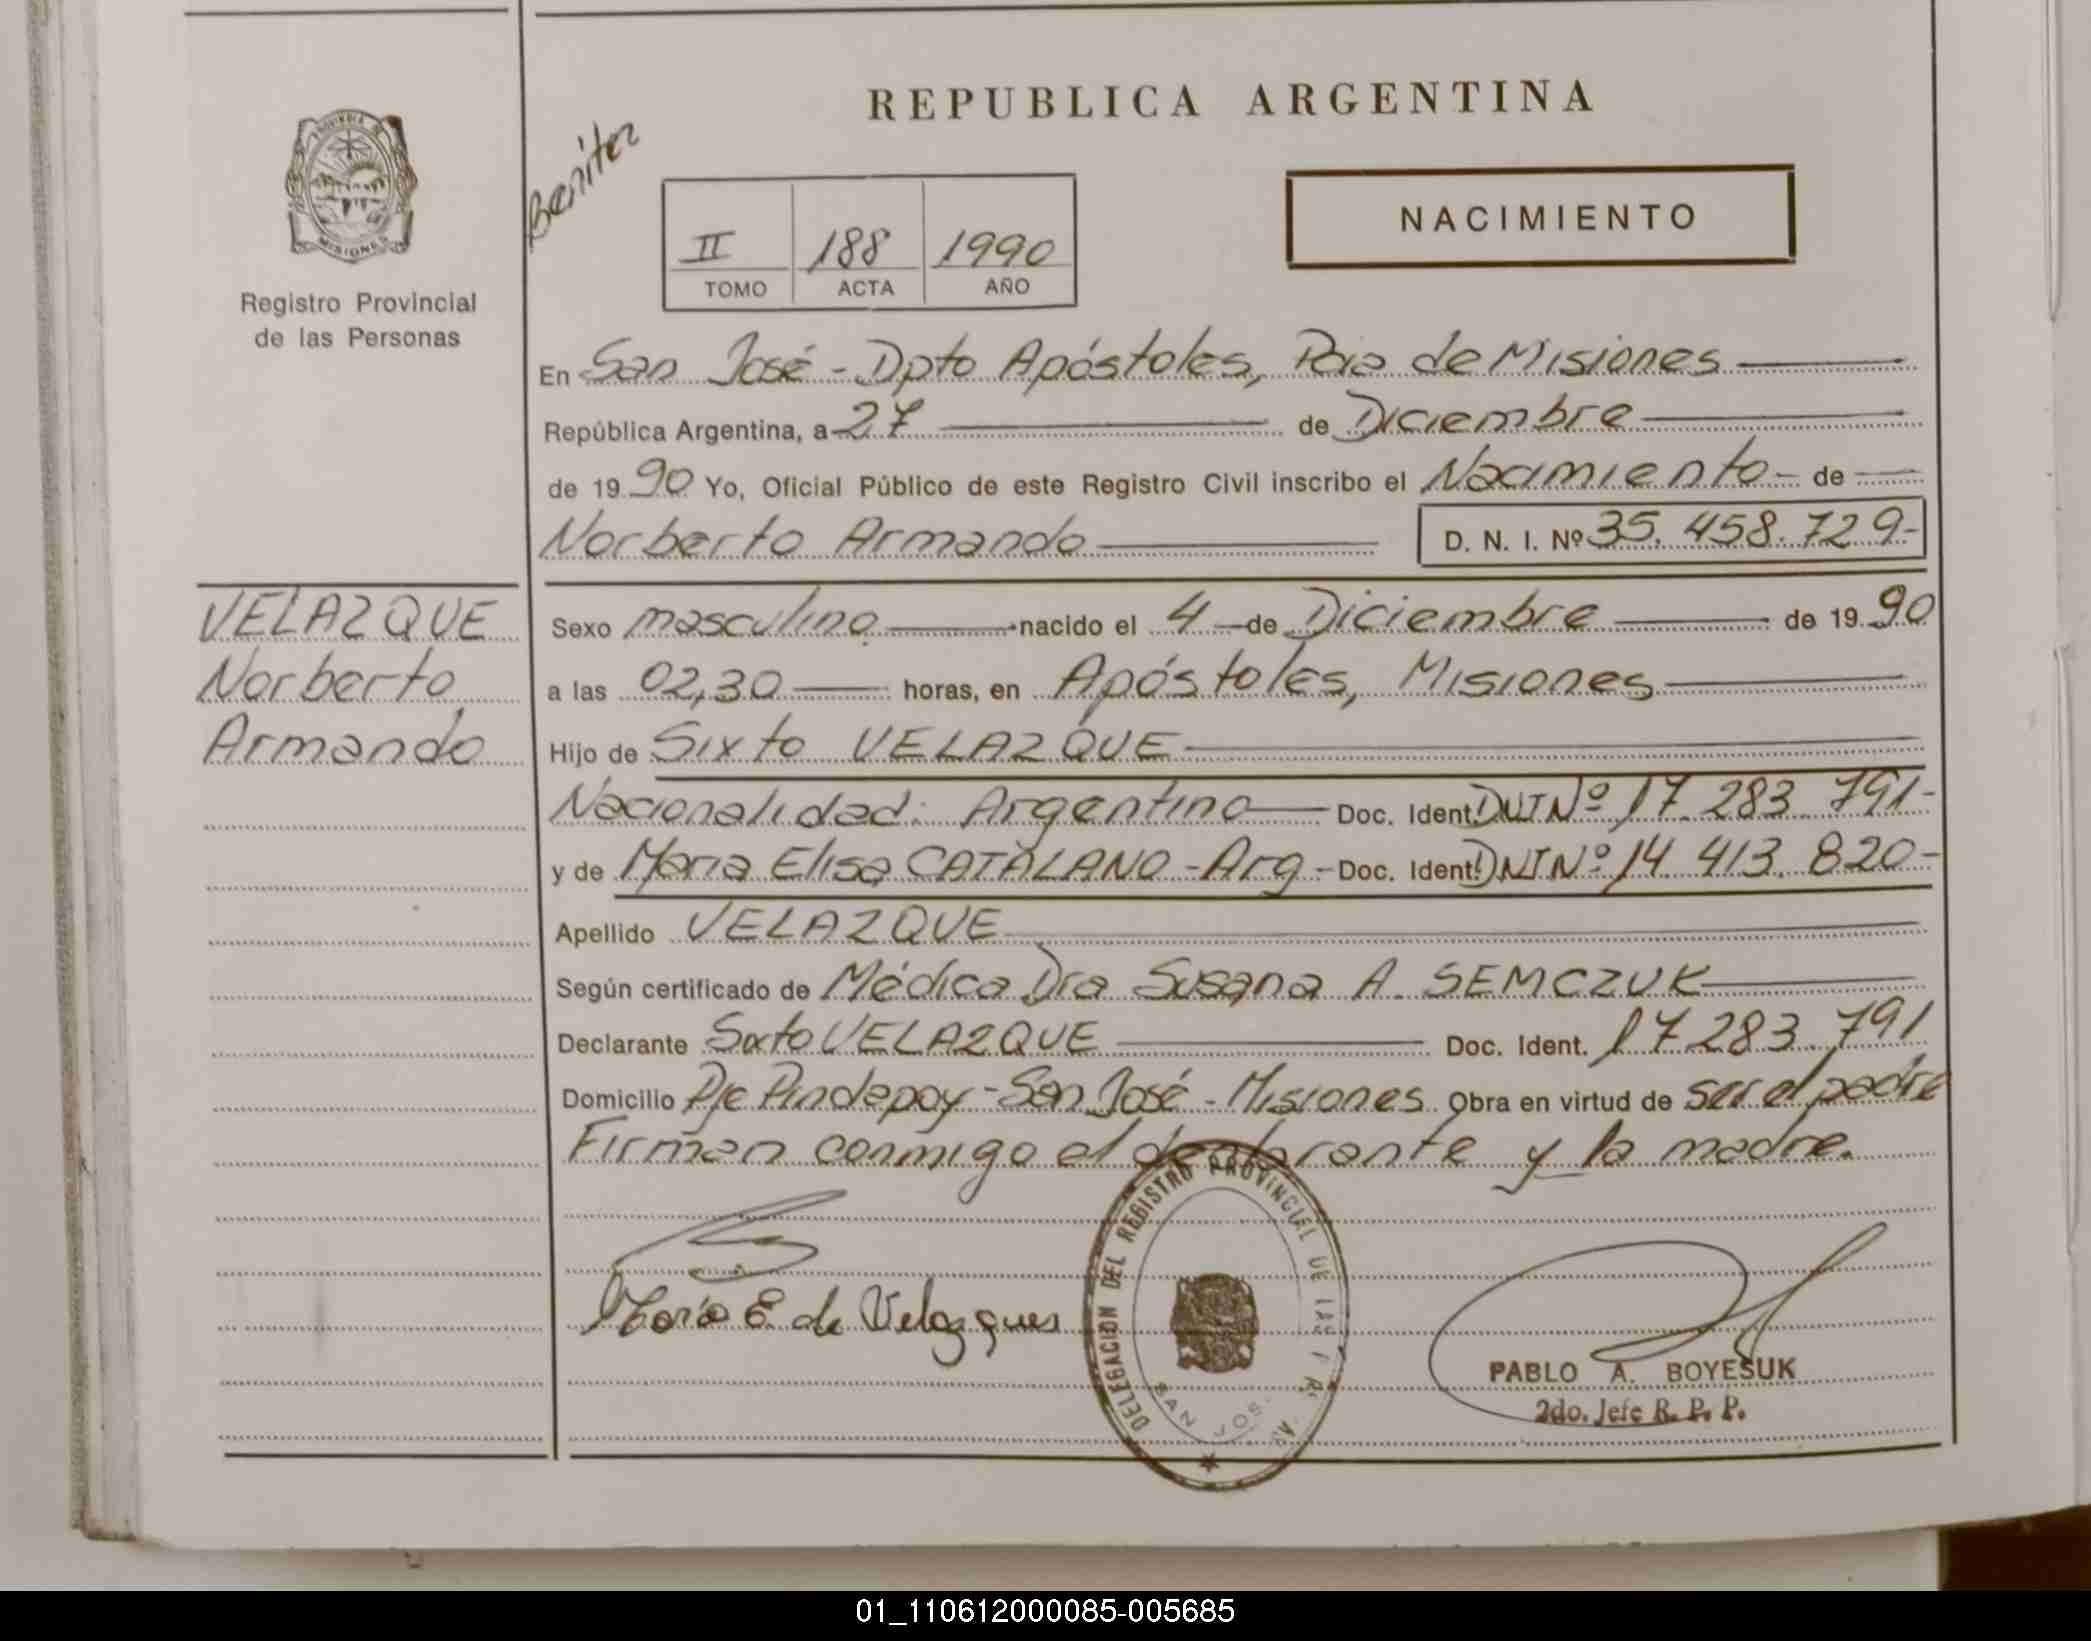 REPUBLICA ARGENTINA
PROVINCIA DE
MISIONES
Registro Provincial
de las Personas
Benitez
NACIMIENTO
II 188 1990
TOMO ACTA AÑO
En San José - Dpto Apóstoles, Pcia de Misiones
República Argentina, a 27 de Diciembre
de 1990 Yo, Oficial Público de este Registro Civil inscribo el Nacimiento de
Norberto Armando D. N. I. Nº 35.458.729-
VELAZQUE
Norberto
Armando
Sexo masculino nacido el 4 de Diciembre de 1990
a las 02,30 horas, en Apóstoles, Misiones
Hijo de Sixto VELAZQUE
Nacionalidad: Argentina Doc. Ident. DNI Nº 17.283.791-
y de Maria Elisa CATALANO - Arg - Doc. Ident. DNI Nº 14.413.820-
Apellido VELAZQUE
Según certificado de Médica Dra Susana A. SEMCZUK
Declarante Sixto VELAZQUE Doc. Ident. 17.283.791
Domicilio Pje Pindapoy - San José - Misiones Obra en virtud de ser el padre
Firman conmigo el declarante y la madre.
María E de Velazques
DELEGACION DEL REGISTRO PROVINCIAL DE LAS
SAN JOS
PABLO A. BOYESUK
2do. Jefe R. P. P.
01_110612000085-005685